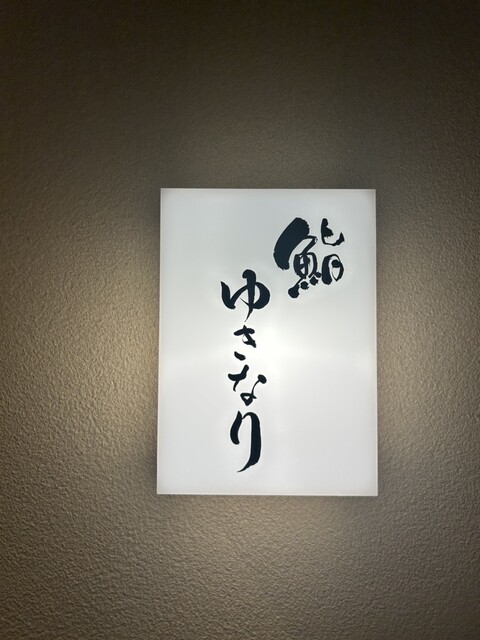 鮨
ゆきなり